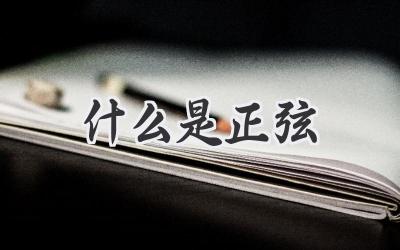 什么是正弦